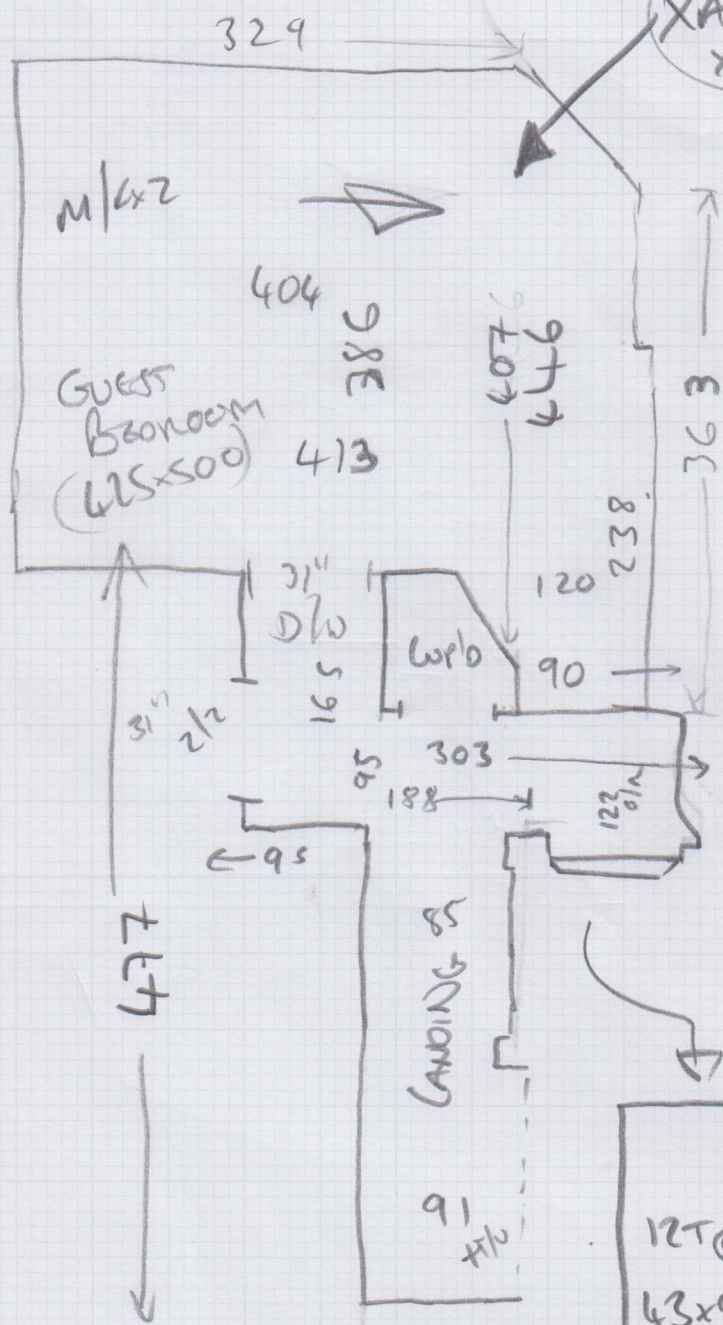 329
XA
M/Cx2
404
386
4076
446
363
GUEST
BEDROOM
(425x500)
413
238
31"
D/W
120
Cup'd
90
165
31"
2/2
95
303
188
122
←95
477
LANDING
91
12T
43x